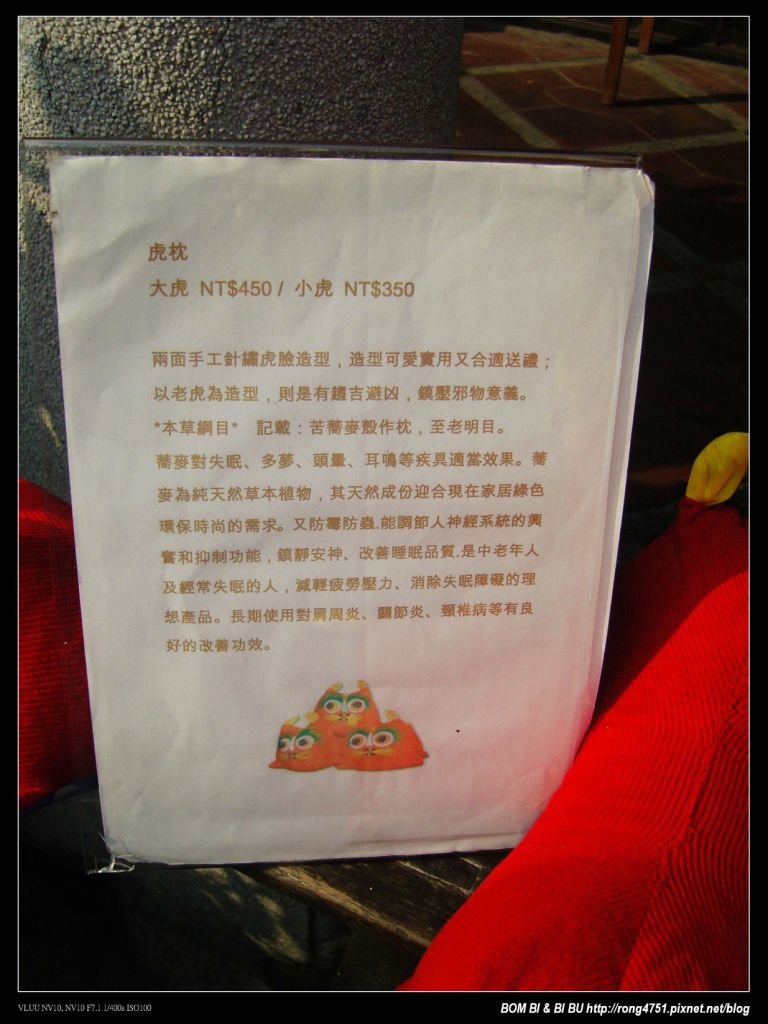 虎枕
大虎 NT$450 / 小虎 NT$350
兩面手工針繡虎臉造型，造型可愛實用又合適送禮；
以老虎為造型，則是有趨吉避凶，鎮壓邪物意義。
*本草綱目* 記載：苦蕎麥殼作枕，至老明目。
蕎麥對失眠、多夢、頭暈、耳鳴等疾具適當效果。蕎
麥為純天然草本植物，其天然成份迎合現在家居綠色
環保時尚的需求。又防霉防蟲.能調節人神經系統的興
奮和抑制功能，鎮靜安神、改善睡眠品質.是中老年人
及經常失眠的人，減輕疲勞壓力、消除失眠障礙的理
想產品。長期使用對肩周炎、關節炎、頸椎病等有良
好的改善功效。
VLUU NV10, NV10 F7.1 1/400s ISO100
BOM BI & BI BU http://rong4751.pixnet.net/blog